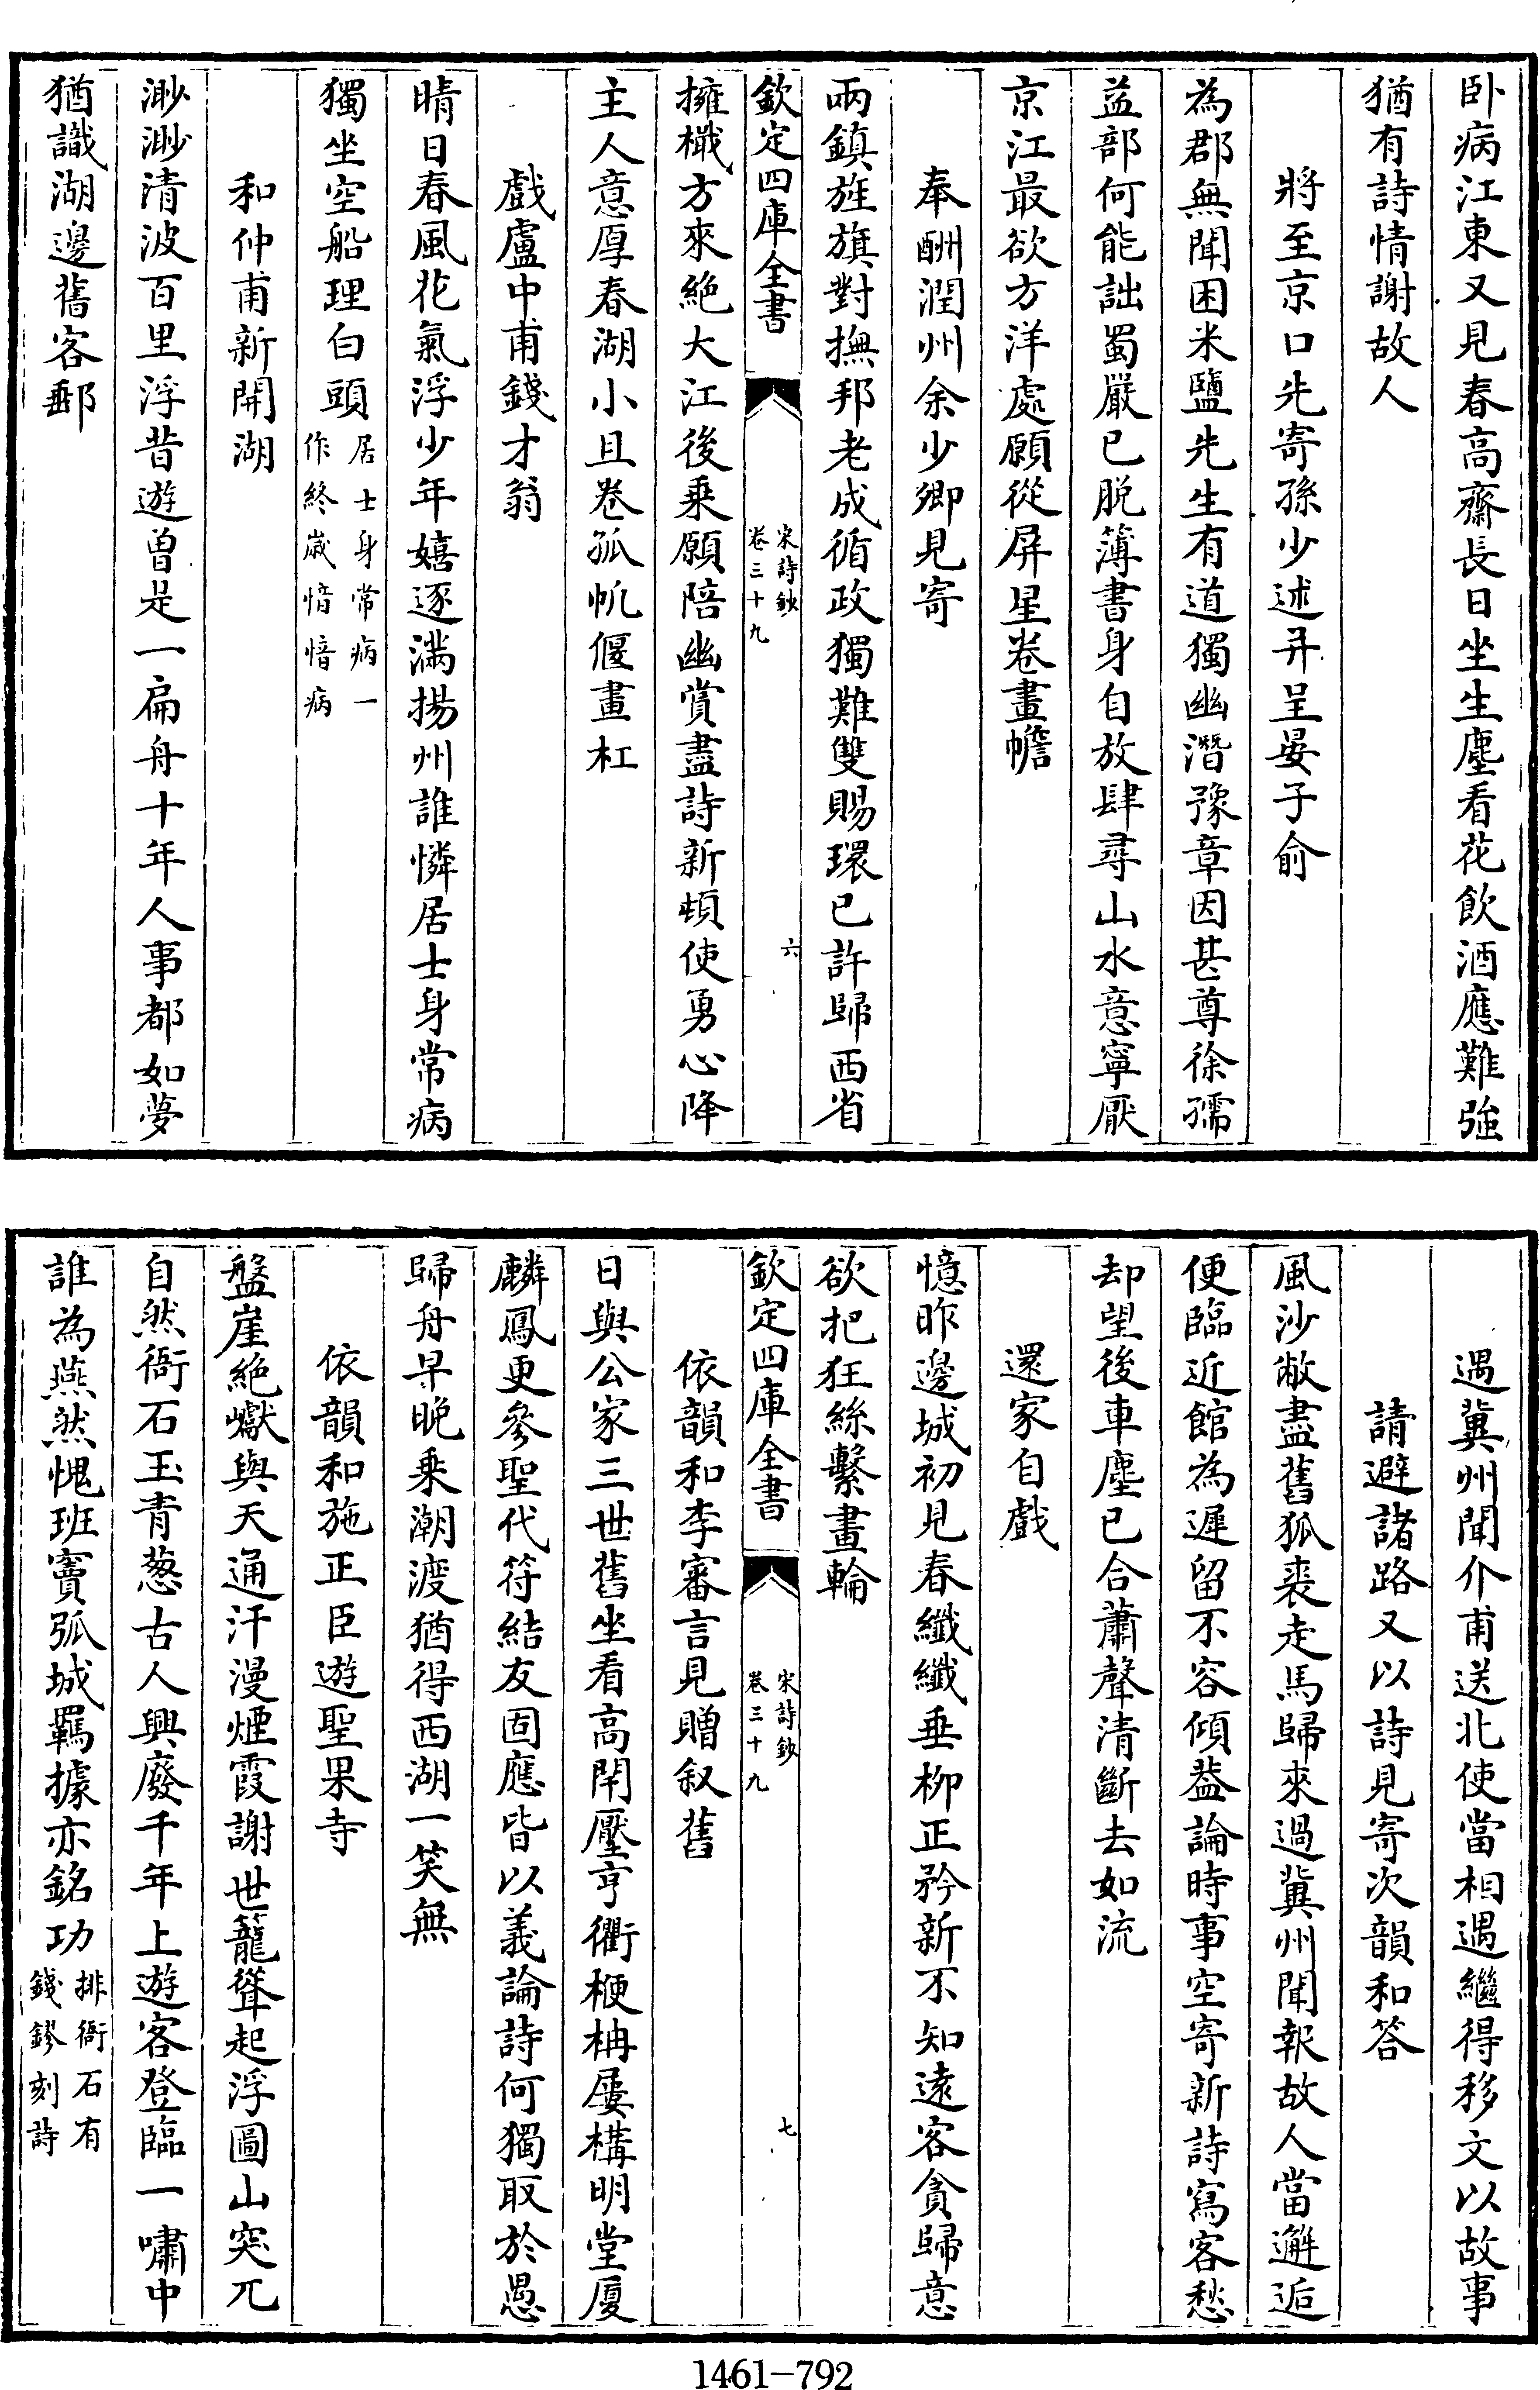 卧病江東又見春高齋長日坐生塵看花飲酒應難強
猶有詩情謝故人
將至京口先寄孫少述并呈晏子俞
為郡無聞困米鹽先生有道獨幽潛豫章因甚尊徐孺
益部何能詘蜀嚴已脫簿書身自放肆尋山水意寧厭
京江最欲方洋處願從屏星卷畫幨
奉酬潤州余少卿見寄
兩鎮旌旗對撫邦老成循政獨難雙賜環已許歸西省
欽定四庫全書
宋詩鈔
卷三十九
六
擁檝方來絶大江後乘願陪幽賞盡詩新頓使勇心降
主人意厚春湖小且卷孤帆偃畫杠
戲盧中甫錢才翁
晴日春風花氣浮少年嬉逐滿揚州誰憐居士身常病
獨坐空船理白頭居士身常病一作終歲愔愔病
和仲甫新開湖
渺渺清波百里浮昔遊曽是一扁舟十年人事都如夢
猶識湖邊舊客郵
遇冀州聞介甫送北使當相遇繼得移文以故事
請避諸路又以詩見寄次韻和答
風沙敝盡舊狐裘走馬歸來過冀州聞報故人當邂逅
便臨近館為遲留不容傾葢論時事空寄新詩寫客愁
却望後車塵已合蕭聲清斷去如流
還家自戲
憶昨邊城初見春纖纖垂栁正矜新不知逺客貪歸意
欲把狂絲繫畫輪
欽定四庫全書
宋詩鈔
卷三十九
七
依韻和李審言見贈叙舊
日與公家三世舊坐看高閈壓亨衢梗柟屢構明堂厦
麟鳳更參聖代符結友固應皆以義論詩何獨取於愚
歸舟早晚乗潮渡猶得西湖一笑無
依韻和施正臣遊聖果寺
盤崖絶巘與天通汗漫煙霞謝世籠聳起浮圖山突兀
自然衙石玉青葱古人興廢千年上遊客登臨一嘯中
誰為燕然愧班竇弧城羈據亦銘功排衙石有錢鏐刻詩
1461-792